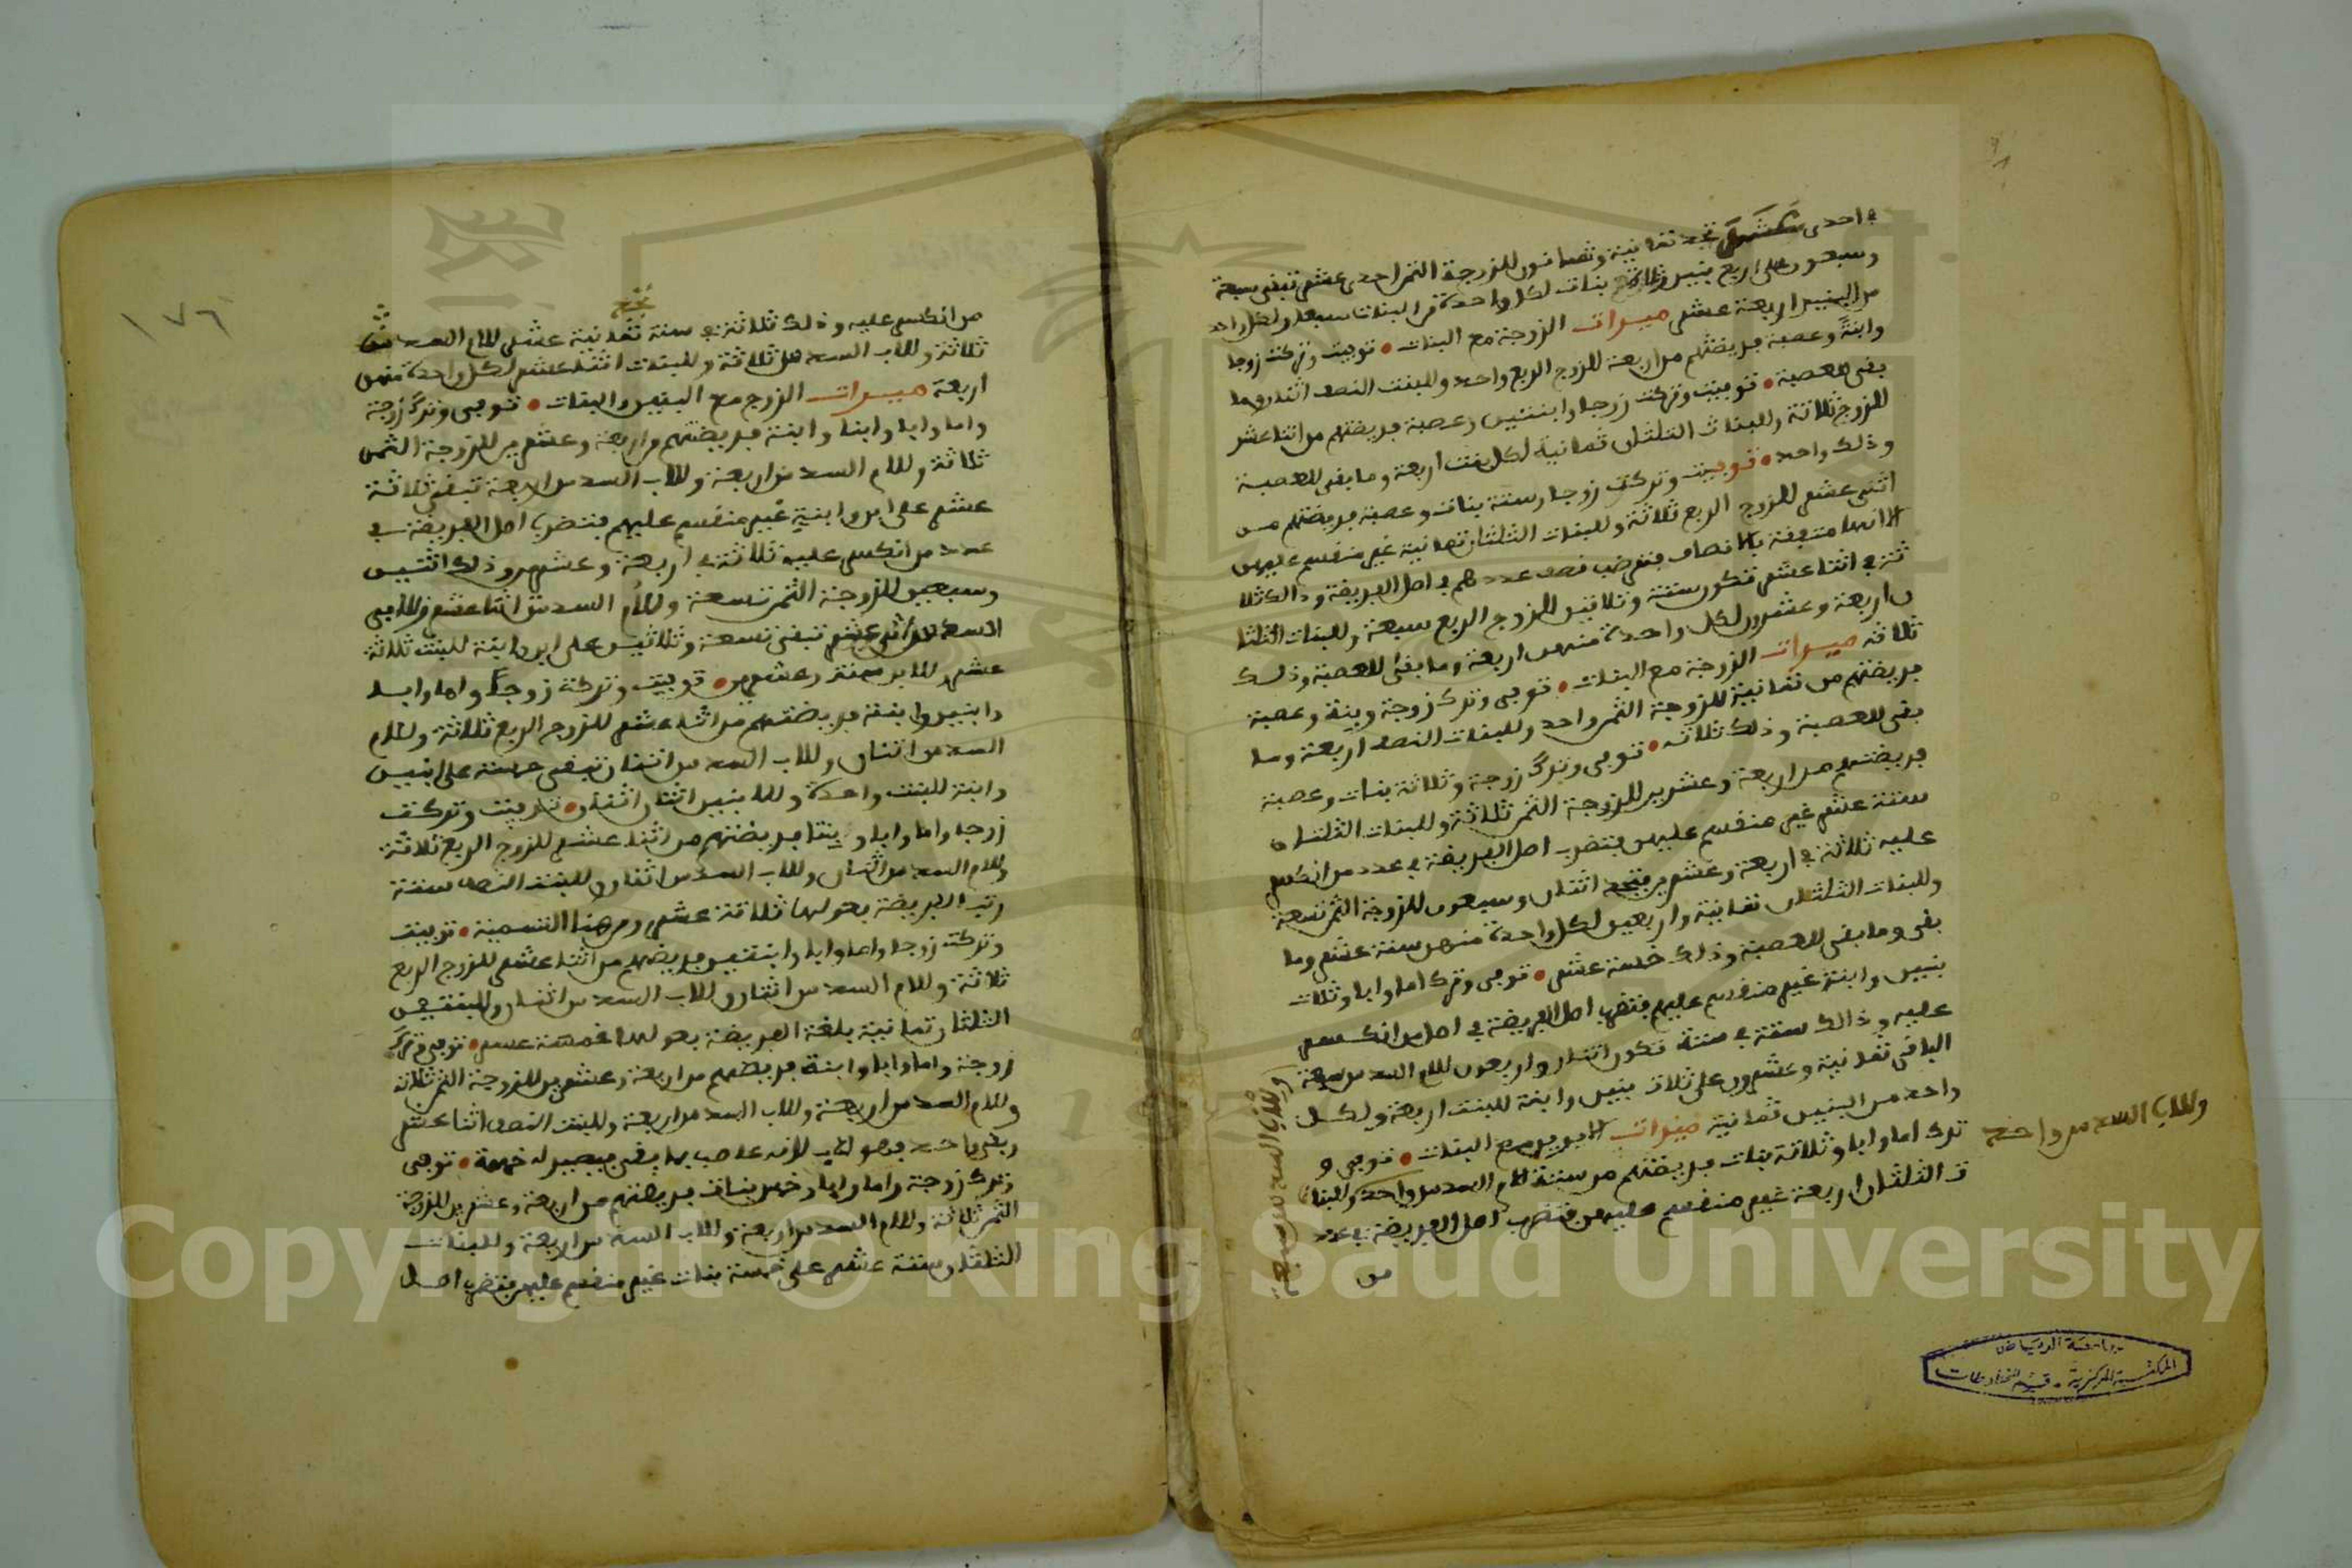 في احدى عشر تجد ثمانية وثمانون للزوجة الثمن احدى عشر تبقى سبعة
وسبعون على اربع بنين وثلاثة بنات لكل واحدة من البنات سبعة ولكل واحد
من البنين اربعة عشر ميراث الزوجة مع البنات • توفيت وتركت زوجا
وابنة وعصبة فريضتهم من اربعة للزوج الربع واحد وللبنت النصف اثنان وما
بقى للعصبة • توفيت وتركت زوجا وابنتين وعصبة فريضتهم من اثنا عشر
للزوج ثلاثة وللبنات الثلثان ثمانية لكل بنت اربعة وما بقى للعصبة
وذلك واحد • توفيت وتركت زوجا وستة بنات وعصبة فريضتهم من
اثنى عشر للزوج الربع ثلاثة وللبنات الثلثان ثمانية غير منقسم عليهن
الا انها متفقة بالانصاف فتضرب نصف عددهم في اصل الفريضة وذالك ثلا
ثة في اثنا عشر تكون ستة وثلاثين للزوج الربع تسعة وللبنات الثلثا
ن اربعة وعشرون لكل واحدة منهن اربعة وما بقى للعصبة وذلك
ثلاثة ميراث الزوجة مع البنات • توفى وترك زوجة وبنة وعصبة
فريضتهم من ثمانية للزوجة الثمن واحد وللبنات النصف اربعة وما
بقى للعصبة وذلك ثلاثة • توفى وترك زوجة وثلاثة بنات وعصبة
فريضتهم من اربعة وعشرين للزوجة الثمن ثلاثة وللبنات الثلثان
ستة عشر غير منقسم عليهن فتضرب اصل الفريضة في عدد من انكسر
عليه ثلاثة في اربعة وعشرين فتجد اثنان وسبعون للزوجة الثمن تسعة
وللبنات الثلثان ثمانية واربعين لكل واحدة منهن ستة عشر وما
بقى وما بقى للعصبة وذلك خمسة عشر • توفى وترك اما وابا وثلاث
بنين وابنة غير منقسم عليهم فتضرب اصل الفريضة في اصل من انكسر
عليه وذالك ستة في ستة تكون اثنان واربعون للام السدس سبعة
وللاب السدس سبعة
الباقى ثمانية وعشرون على ثلاث بنين وابنة للبنت اربعة ولكل
واحد من البنين ثمانية ميراث الابوين مع البنات • توفى و
ترك اما وابا وثلاثة بنات فريضتهم من ستة للام السدس واحد وللبنا
وللاب السدس واحد
ت الثلثان اربعة غير منقسم عليهن فتضرب اصل الفريضة في عدد
من
جامعة الرياض
المكتبة المركزية - قسم المخطوطات
١٧٦
من انكسر عليه وذلك ثلاثة في ستة ثمانية عشر للام السدس
ثلاثة وللاب السدس ثلاثة وللبنات اثنا عشر لكل واحدة منهن
اربعة ميراث الزوج مع البنين والبنات • توفى وترك زوجة
واما وابا وابنا وابنة فريضتهم من اربعة وعشرين للزوجة الثمن
ثلاثة وللام السدس اربعة وللاب السدس اربعة تبقى ثلاثة
عشر على ابن وابنة غير منقسم عليهم فتضرب اصل الفريضة في
عدد من انكسر عليه ثلاثة في اربعة وعشرين وذلك اثنين
وسبعين للزوجة الثمن تسعة وللام السدس اثنا عشر وللاب
السدس اثنى عشر تبقى تسعة وثلاثين على ابن وابنة للبنت ثلاثة
عشر وللابن ستة وعشرين • توفيت وتركت زوجا واما وابا
وابنين وابنة فريضتهم من اثنا عشر للزوج الربع ثلاثة وللام
السدس اثنان وللاب السدس اثنان تبقى خمسة على ابنين
وابنة للبنت واحدة وللابنين اثنان اثنان • توفيت وتركت
زوجا واما وابا وبنتا فريضتهم من اثنا عشر للزوج الربع ثلاثة
وللام السدس اثنان وللاب السدس اثنان وللبنت النصف ستة
الفريضة بعولها ثلاثة عشر ومن هنا التسمية • توفيت
وتركت زوجا واما وابا وابنتين فريضتهم من اثنا عشر للزوج الربع
ثلاثة وللام السدس اثنان وللاب السدس اثنان وللبنتين
الثلثان ثمانية بلغة الفريضة بعولها خمسة عشر • توفى وترك
زوجة واما وابا وابنة فريضتهم من اربعة وعشرين للزوجة الثمن ثلاثة
وللام السدس اربعة وللاب السدس اربعة وللبنت النصف اثنا عشر
وبقى واحد فهو للاب لانه عاصب بما بقى فيصير له خمسة • توفى
وترك زوجة واما وابا وخمس بنات فريضتهم من اربعة وعشرين للزوجة
الثمن ثلاثة وللام السدس اربعة وللاب السدس اربعة وللبنات
الثلثان ستة عشر على خمسة بنات غير منقسم عليهن فتضرب اصل
Copyright © King Saud University